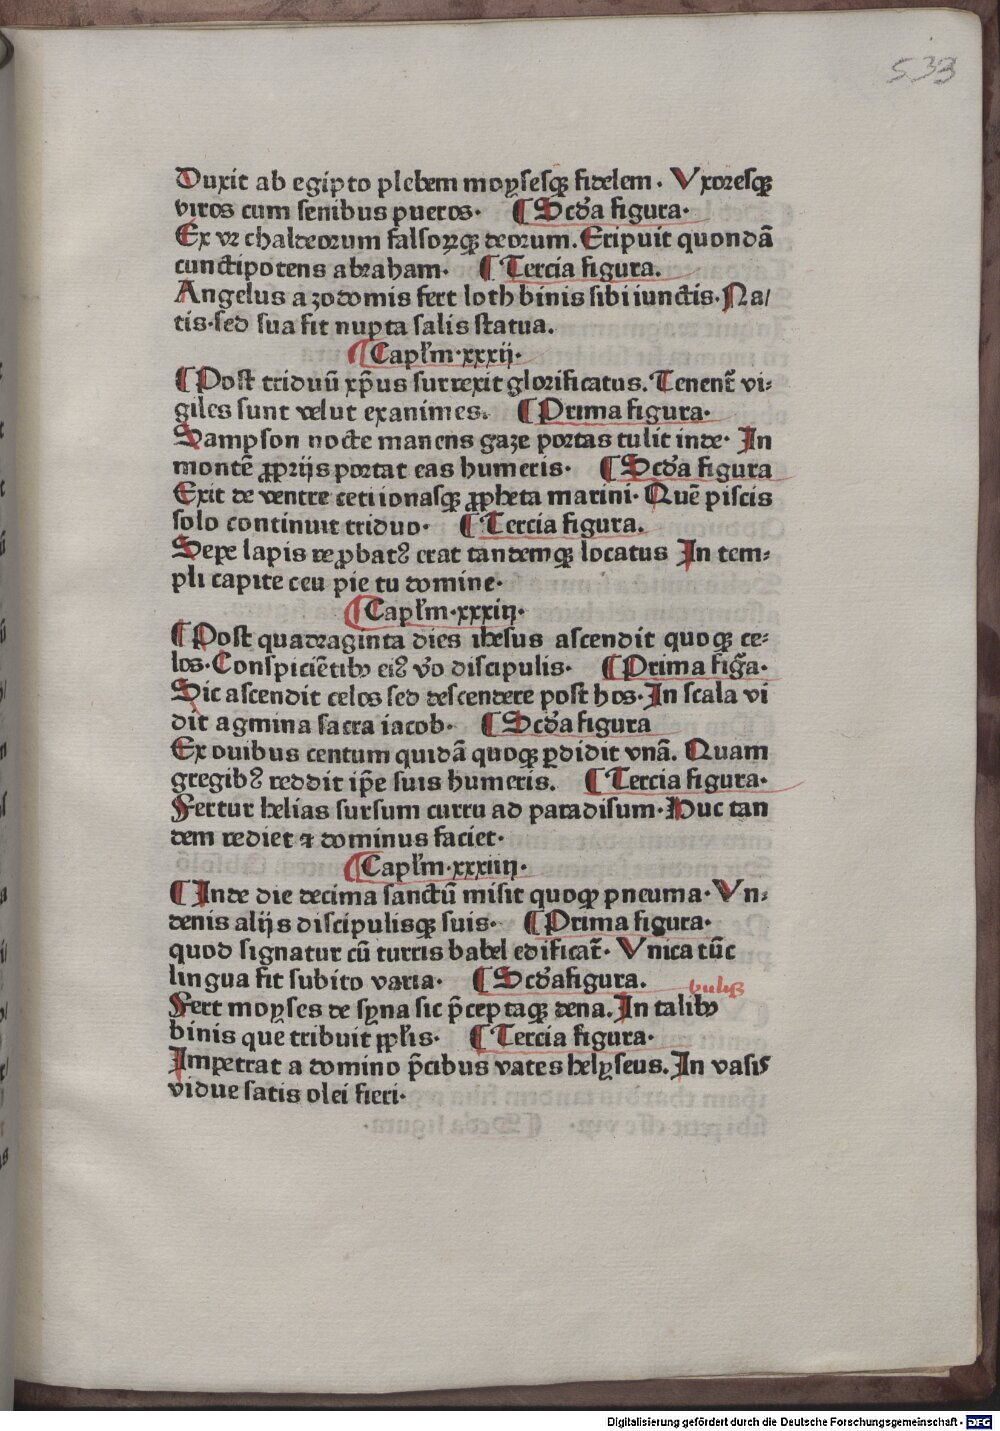 533
Duxit ab egipto plebem moẏsesqꝫ fidelem. Vxoresqꝫ
viros cum senibus pueros. ¶ Scďa figura.
Ex vr chaldeorum falsoꝝqꝫ deorum. Eripuit quondā
cunctipotens abraham. ¶ Tercia figura.
Angelus a zodomis fert loth binis sibi iunctis. Na/
tis. sed sua fit nupta salis statua.
¶ Capťm. xxxij.
¶ Post triduū xp̄us surrexit glorificatus. Tenent̄ vi-
giles sunt velut exanimes. ¶ Prima figura.
Sampson nocte manens gaze portas tulit inde. In
montē ꝓprijs portat eas humeris. ¶ Scďa figura
Exit de ventre ceti ionasqꝫ ꝓpheta marini. Quē piscis
solo continuit triduo. ¶ Tercia figura.
Sepe lapis reꝓbatꝰ erat tandemqꝫ locatus In tem-
pli capite ceu pie tu domine.
¶ Capťm. xxxiij.
¶ Post quadraginta dies ihesus ascendit quoqꝫ ce-
los. Conspiciētibꝫ eiꝰ v̓o discipulis. ¶ Prima figᷓa.
Sic ascendit celos sed descendere post hos. In scala vi
dit agmina sacra iacob. ¶ Scďa figura
Ex ouibus centum quidā quoqꝫ ꝑdidit vnā. Quam
gregibꝰ reddit ip̄e suis humeris. ¶ Tercia figura.
Fertur helias sursum curru ad paradisum. Huc tan
dem rediet ⁊ dominus faciet.
¶ Capťm. xxxiiij.
¶ Inde die decima sanctū misit quoqꝫ pneuma. Vn-
denis alijs discipulisqꝫ suis. ¶ Prima figura.
quod signatur cū turris babel edificat̄. Vnica tūc
lingua fit subito varia. ¶ Scďa figura.
Fert moẏses de sẏna sic p̄ceptaqꝫ dena. In talibꝫ
binis quē tribuit ꝓp̄lis. ¶ Tercia figura.
Impetrat a domino p̄cibus vates helẏseus. In vasis
vidue satis olei fieri.
Digitalisierung gefördert durch die Deutsche Forschungsgemeinschaft - DFG